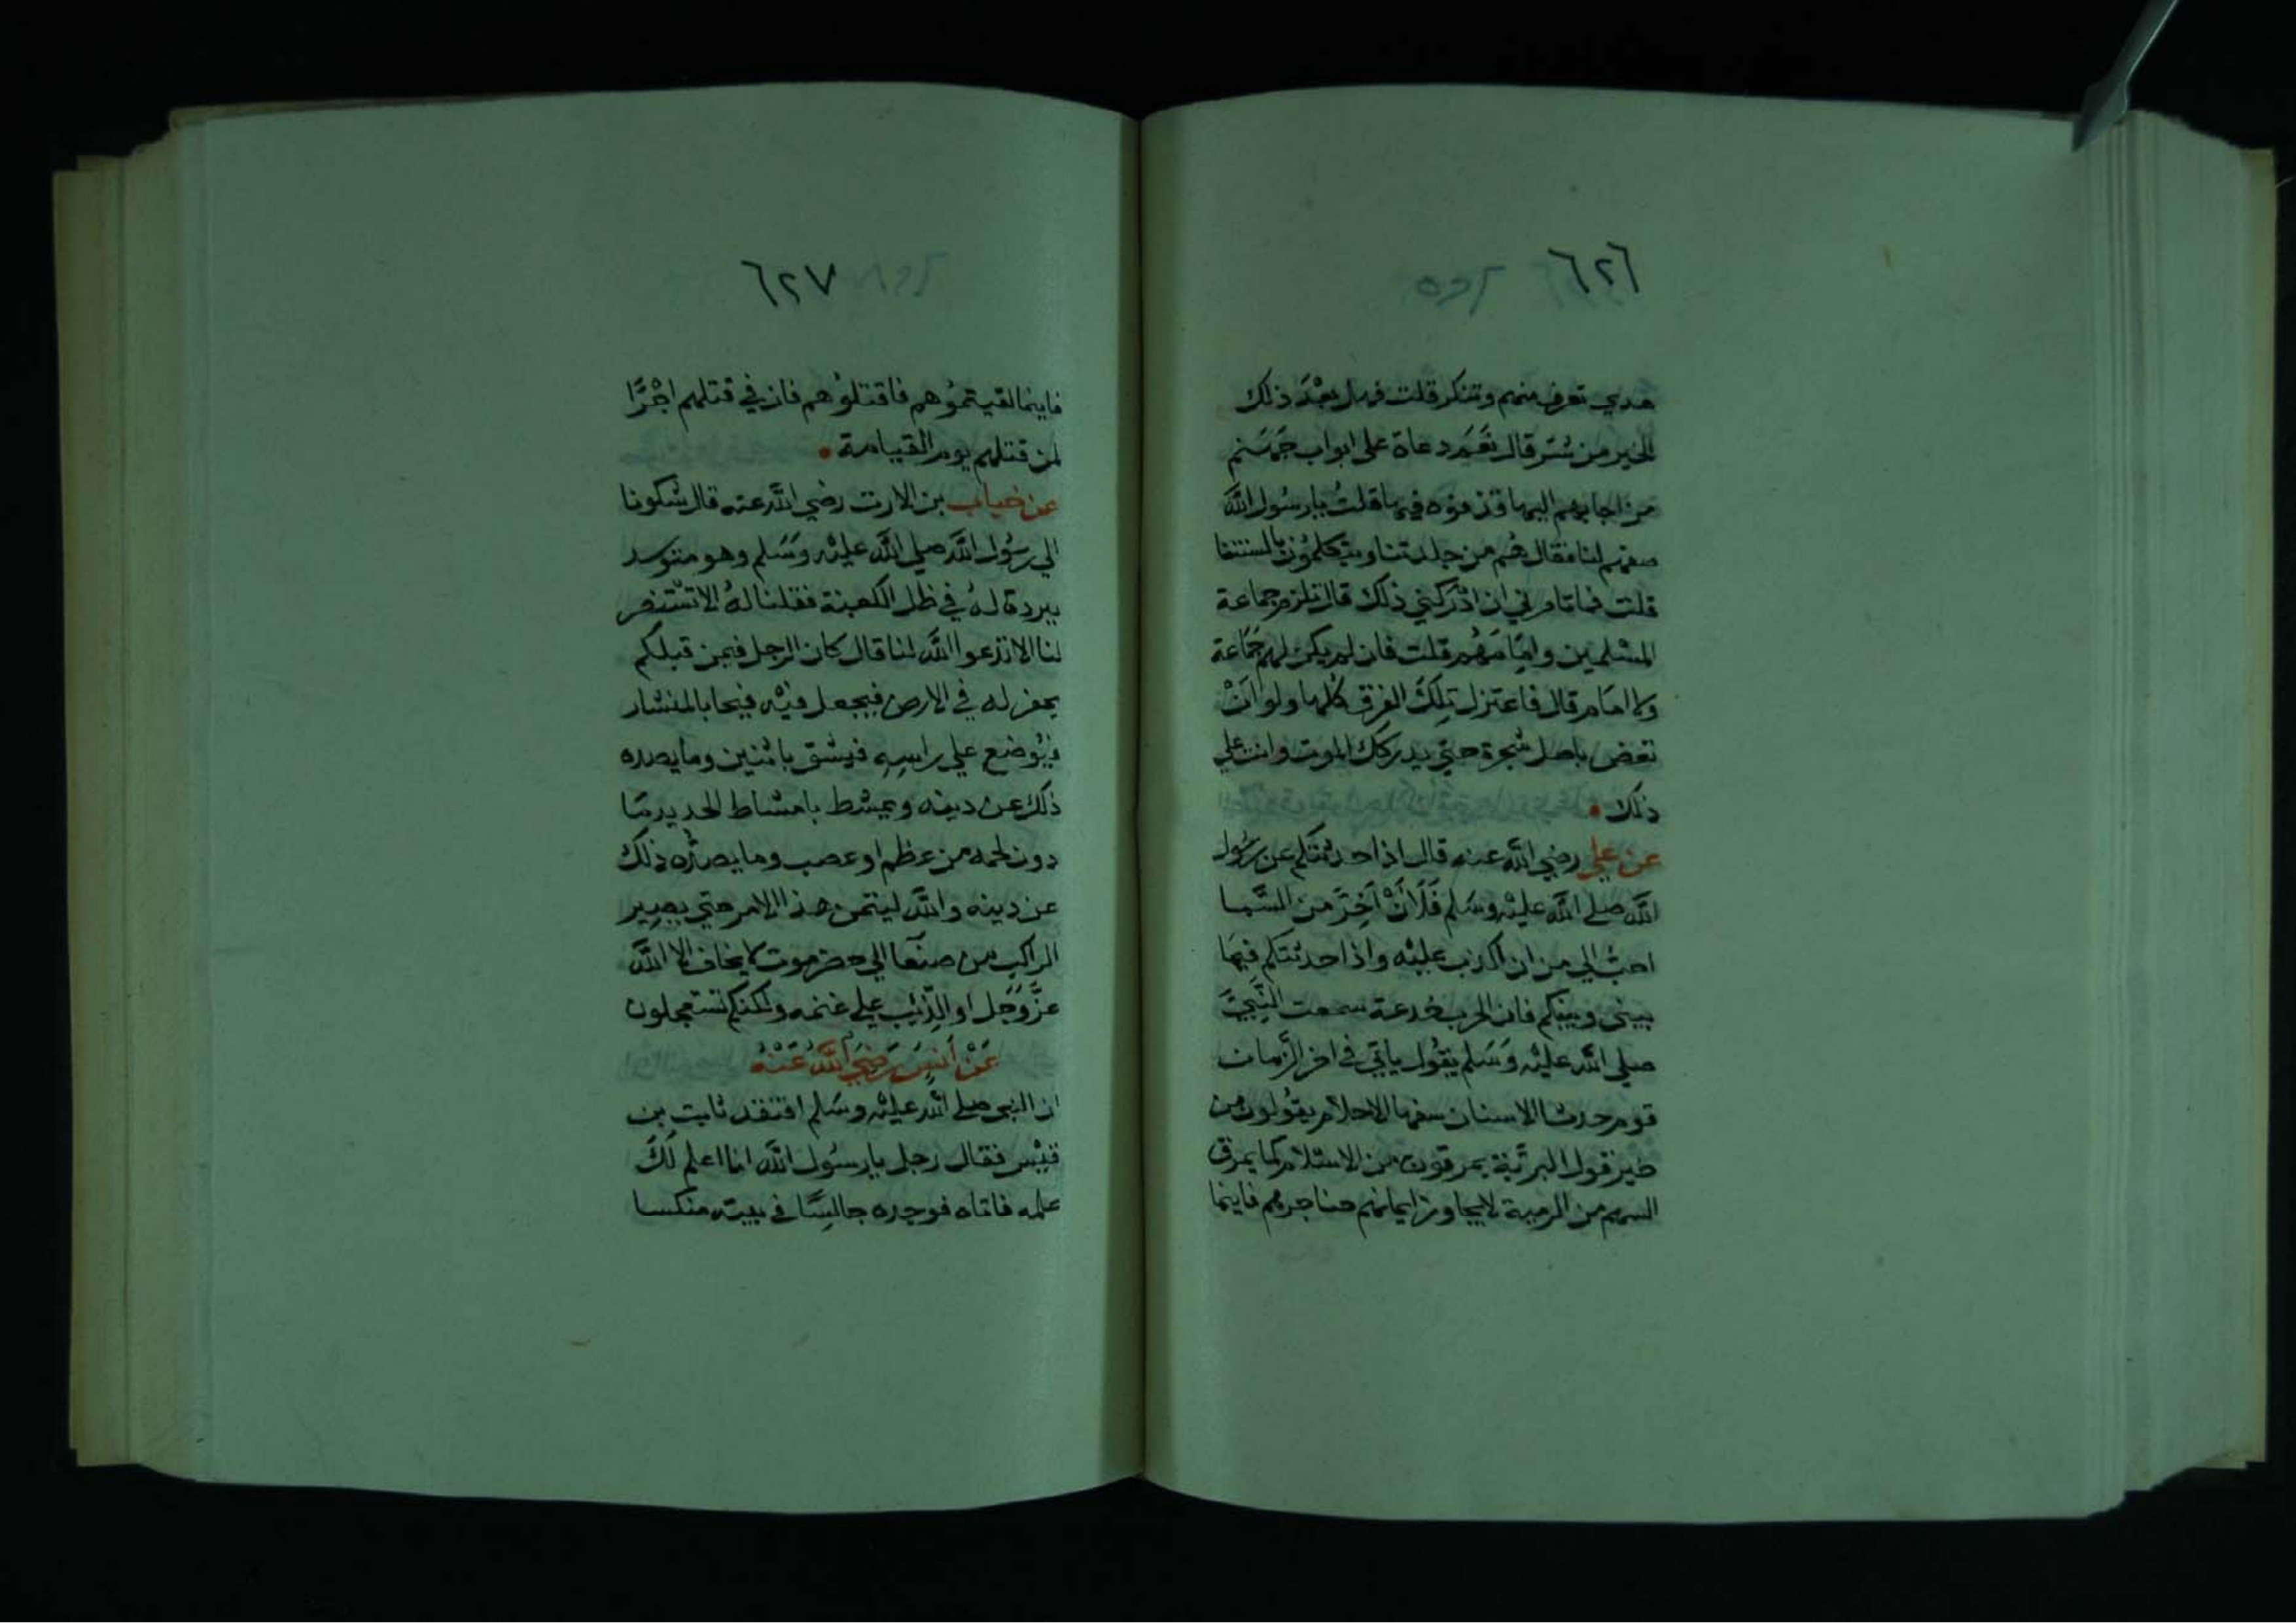 ٦٢٦
هديي تعرف منهم وتنكر قلت فهل بعْدَ ذلك
الخير من شر قال نَعَم دعاة على ابواب جَهَنم
من اجابهم اليها قذفوه فيها قلتُ يارسُول اللَّه
صفهم لنا فقال هُم من جلدتنا ويتكلمُون بالسنتنا
قلت فما تامرني ان ادْركني ذلك قال تلزم جماعة
المسْلمين وامِامَهُم قلت فان لم يكن لهم جَماعة
ولا امَام قال فاعتزل تِلكَ الفرق كُلها ولو انْ
تعض باصل شجرة حتي يدرككَ الموت وانت علي
ذلك
عن علي رضي اللَّه عنه قال اذا حدثتكم عن رسُول
اللَّه صلي اللَّه عليْه وسَلم فَلَانْ اَخِرَّ منَ السَّما
احبُّ الي من ان اكذب عليْه واذا حدثتكم فيمَا
بيني وبينكم فان الحرب خدعة سمعت النَّبِيَّ
صلي اللَّه عليْه وَسَلم يقُول ياتي في اخر الزَّمان
قوم حدثا الاسنان سفها الاحلام يقُولون من
خير قول البريَّة يمرقون من الاسْلام كما يمرق
السهم من الرمية لايجاوز ايمانهم حناجرهم فاينما
٦٢٧
فاينما لقيتمُوهم فاقتلُوهم فان في قتلهم اجْرًا
لمن قتلهم يوم القيامة
عن خباب بن الارت رضي اللَّه عنه قال شكونا
الي رسُول اللَّه صلي اللَّه عليْه وسَلم وهو متوسد
ببردة لهُ في ظل الكعبة فقلنا لهُ الا تسْتنصر
لنا الا تدعوا اللَّه لنا قال كان الرجل فيمن قبلكم
يحفر له في الارض فيجعل فيْه فيجا بالمنشار
فيُوضع علي راسِه فيشق باثنين وما يصده
ذلك عن دينه ويمشط بامشاط الحديد مَا
دون لحمه من عظم او عصب وما يصدُّه ذلك
عن دينه واللَّه ليتمن هذا الامر حتي يصير
الراكب من صنعَا الي حضرموت لا يخاف الا اللَّه
عزَّ وَجَل او الذِّئب علي غنمه ولكنكم تستعجلون
عَنْ اَنسٍ رَضيَ اللَّهُ عَنْهُ
ان النبي صلي اللَّه عليْه وسَلم افتقد ثابت بن
قيْس فقال رجل يارسُول اللَّه انا اعلم لكَ
علمه فاتاه فوجده جالسًا في بيته منكسا